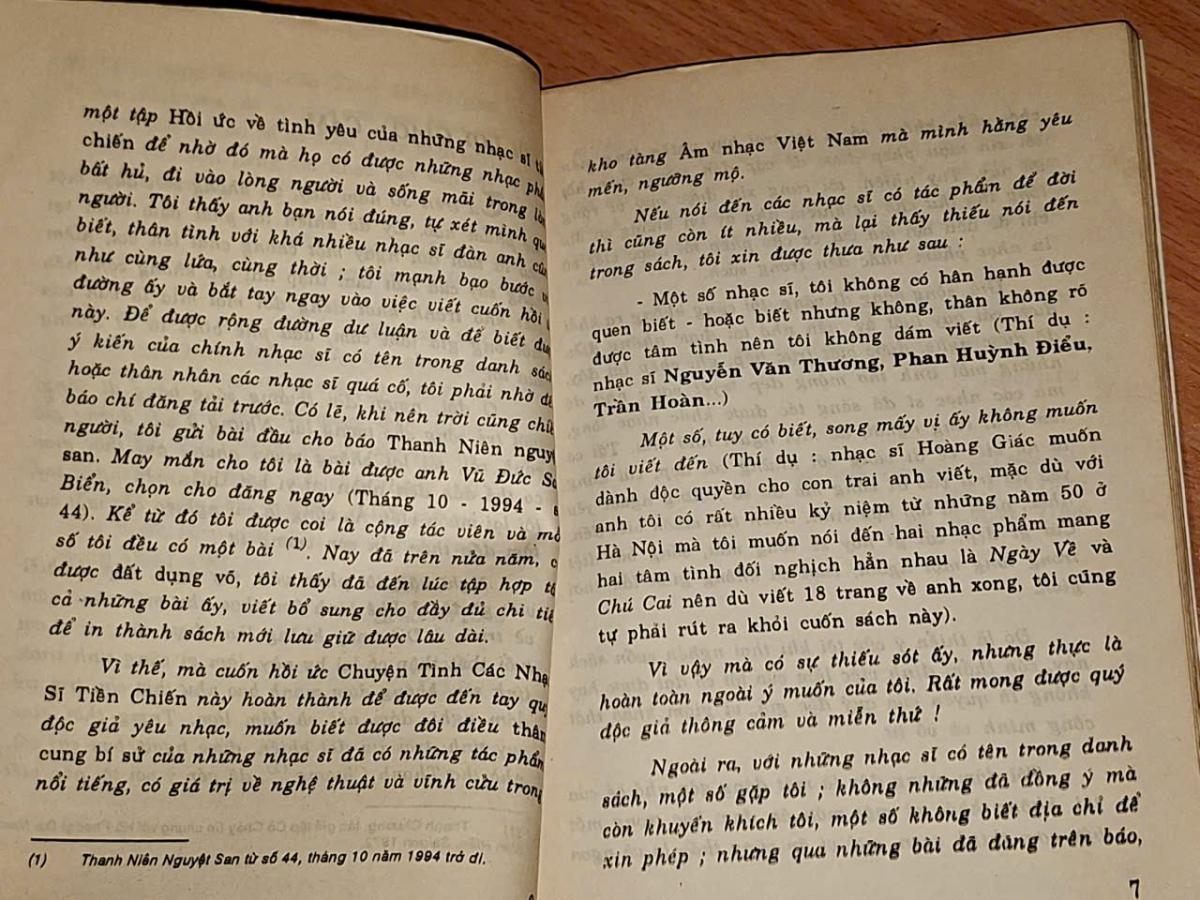 một tập Hồi ức về tình yêu của những nhạc sĩ
chiến để nhờ đó mà họ có được những nhạc
bất hủ, đi vào lòng người và sống mãi trong
người. Tôi thấy anh bạn nói đúng, tự xét mình
biết, thân tình với khá nhiều nhạc sĩ đàn anh
như cùng lứa, cùng thời ; tôi mạnh bạo bước
đường ấy và bắt tay ngay vào việc viết cuốn hồi
này. Để được rộng đường dư luận và để biết
ý kiến của chính nhạc sĩ có tên trong danh
hoặc thân nhân các nhạc sĩ quá cố, tôi phải nhờ
báo chí đăng tải trước. Có lẽ, khi nên trời cũng
người, tôi gửi bài đầu cho báo Thanh Niên
san. May mắn cho tôi là bài được anh Vũ Đức
Biển, chọn cho đăng ngay (Tháng 10 - 1994 -
44). Kể từ đó tôi được coi là cộng tác viên và
số tôi đều có một bài (1). Nay đã trên nửa năm,
được đất dụng võ, tôi thấy đã đến lúc tập hợp
cả những bài ấy, viết bổ sung cho đầy đủ chi
để in thành sách mới lưu giữ được lâu dài.
Vì thế, mà cuốn hồi ức Chuyện Tình Các
Sĩ Tiền Chiến này hoàn thành để được đến tay
độc giả yêu nhạc, muốn biết được đôi điều thâm
cung bí sử của những nhạc sĩ đã có những tác phẩm
nổi tiếng, có giá trị về nghệ thuật và vĩnh cửu trong
(1) Thanh Niên Nguyệt San từ số 44, tháng 10 năm 1994 trở đi.
kho tàng Âm nhạc Việt Nam mà mình hằng yêu
mến, ngưỡng mộ.
Nếu nói đến các nhạc sĩ có tác phẩm để đời
thì cũng còn ít nhiều, mà lại thấy thiếu nói đến
trong sách, tôi xin được thưa như sau :
- Một số nhạc sĩ, tôi không có hân hạnh được
quen biết - hoặc biết nhưng không, thân không rõ
được tâm tình nên tôi không dám viết (Thí dụ :
nhạc sĩ Nguyễn Văn Thương, Phan Huỳnh Điểu,
Trần Hoàn...)
Một số, tuy có biết, song mấy vị ấy không muốn
tôi viết đến (Thí dụ : nhạc sĩ Hoàng Giác muốn
dành độc quyền cho con trai anh viết, mặc dù với
anh tôi có rất nhiều kỷ niệm từ những năm 50 ở
Hà Nội mà tôi muốn nói đến hai nhạc phẩm mang
hai tâm tình đối nghịch hẳn nhau là Ngày Về và
Chú Cai nên dù viết 18 trang về anh xong, tôi cũng
tự phải rút ra khỏi cuốn sách này).
Vì vậy mà có sự thiếu sót ấy, nhưng thực là
hoàn toàn ngoài ý muốn của tôi. Rất mong được quý
độc giả thông cảm và miễn thứ !
Ngoài ra, với những nhạc sĩ có tên trong danh
sách, một số gặp tôi ; không những đã đồng ý mà
còn khuyến khích tôi, một số không biết địa chỉ để
xin phép ; nhưng qua những bài đã đăng trên báo,
7